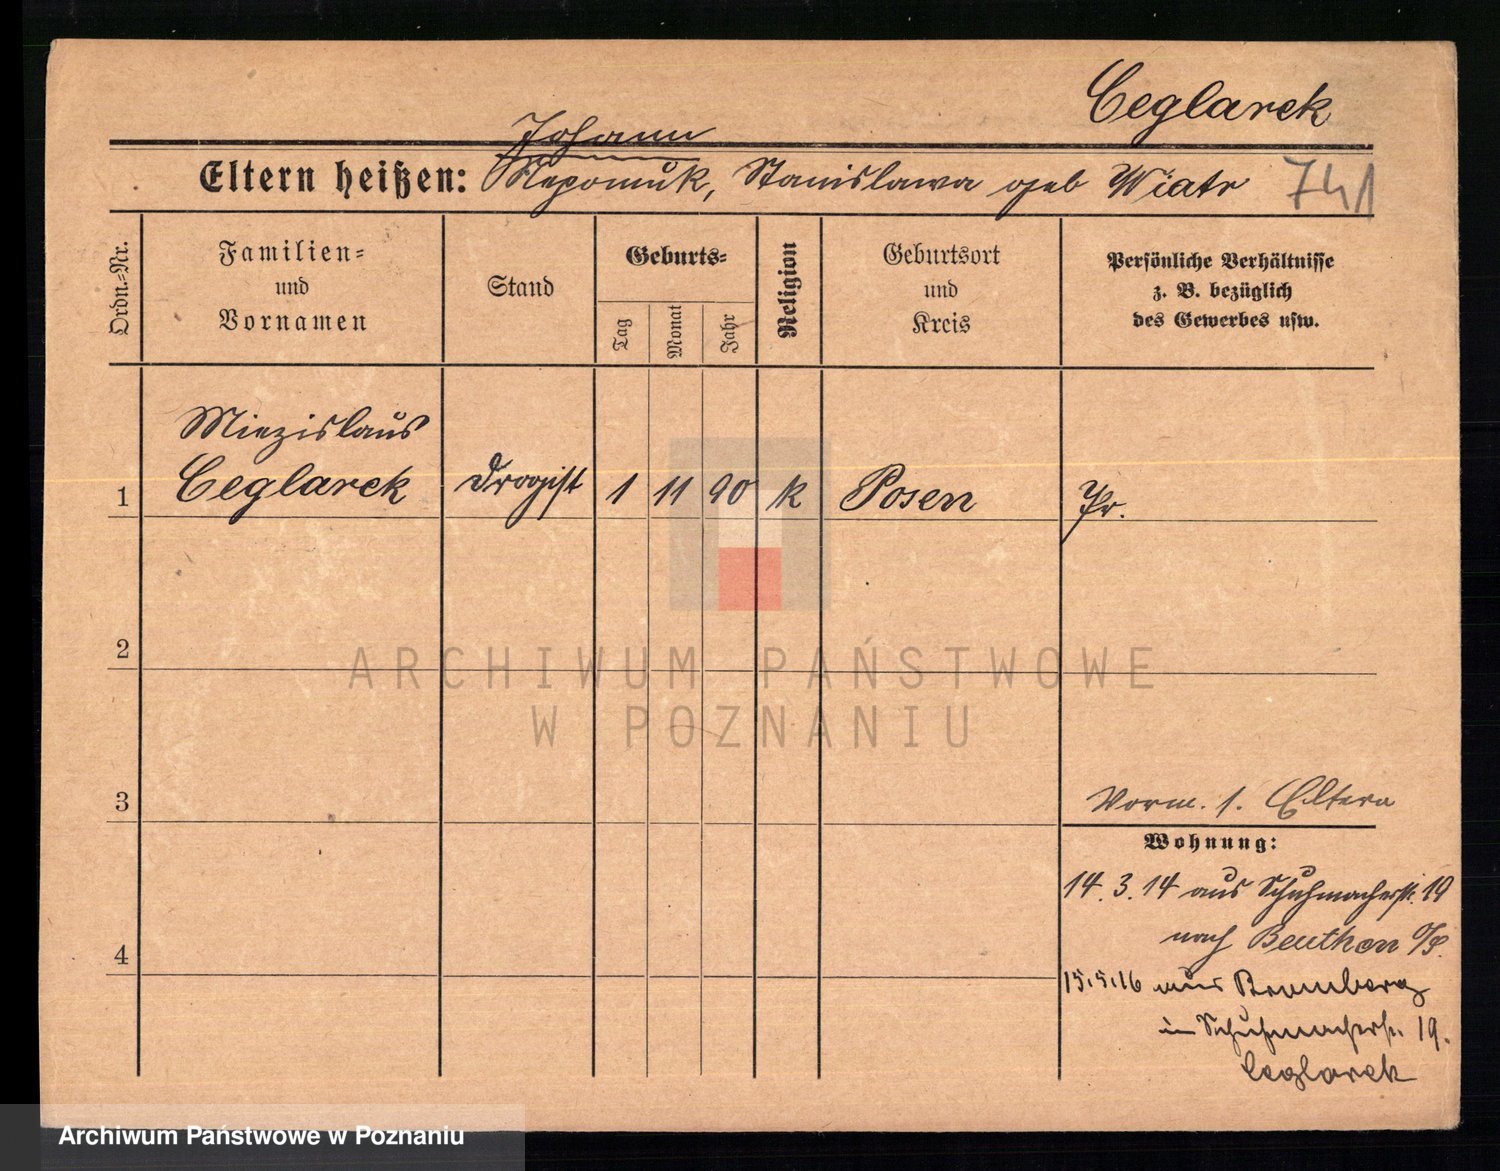 Ceglarek
Johann
Eltern heißen: Nepomuk, Stanislawa geb Wiatr 741
Ordn.=Nr.
Familien=
und
Vornamen
Stand
Geburts=
Tag
Monat
Jahr
Religion
Geburtsort
und
Kreis
Persönliche Verhältnisse
z. B. bezüglich
des Gewerbes usw.
Miezislaus
1 Ceglarek Drogist 1 11 90 k Posen Pr.
2
ARCHIWUM PAŃSTWOWE
W POZNANIU
3
Vorm. s. Eltern
Wohnung:
14.3.14 aus Schuhmacherstr. 19
nach Beuthen O/S.
4
15.5.16 aus Bromberg
in Schuhmacherstr. 19.
Ceglarek
Archiwum Państwowe w Poznaniu